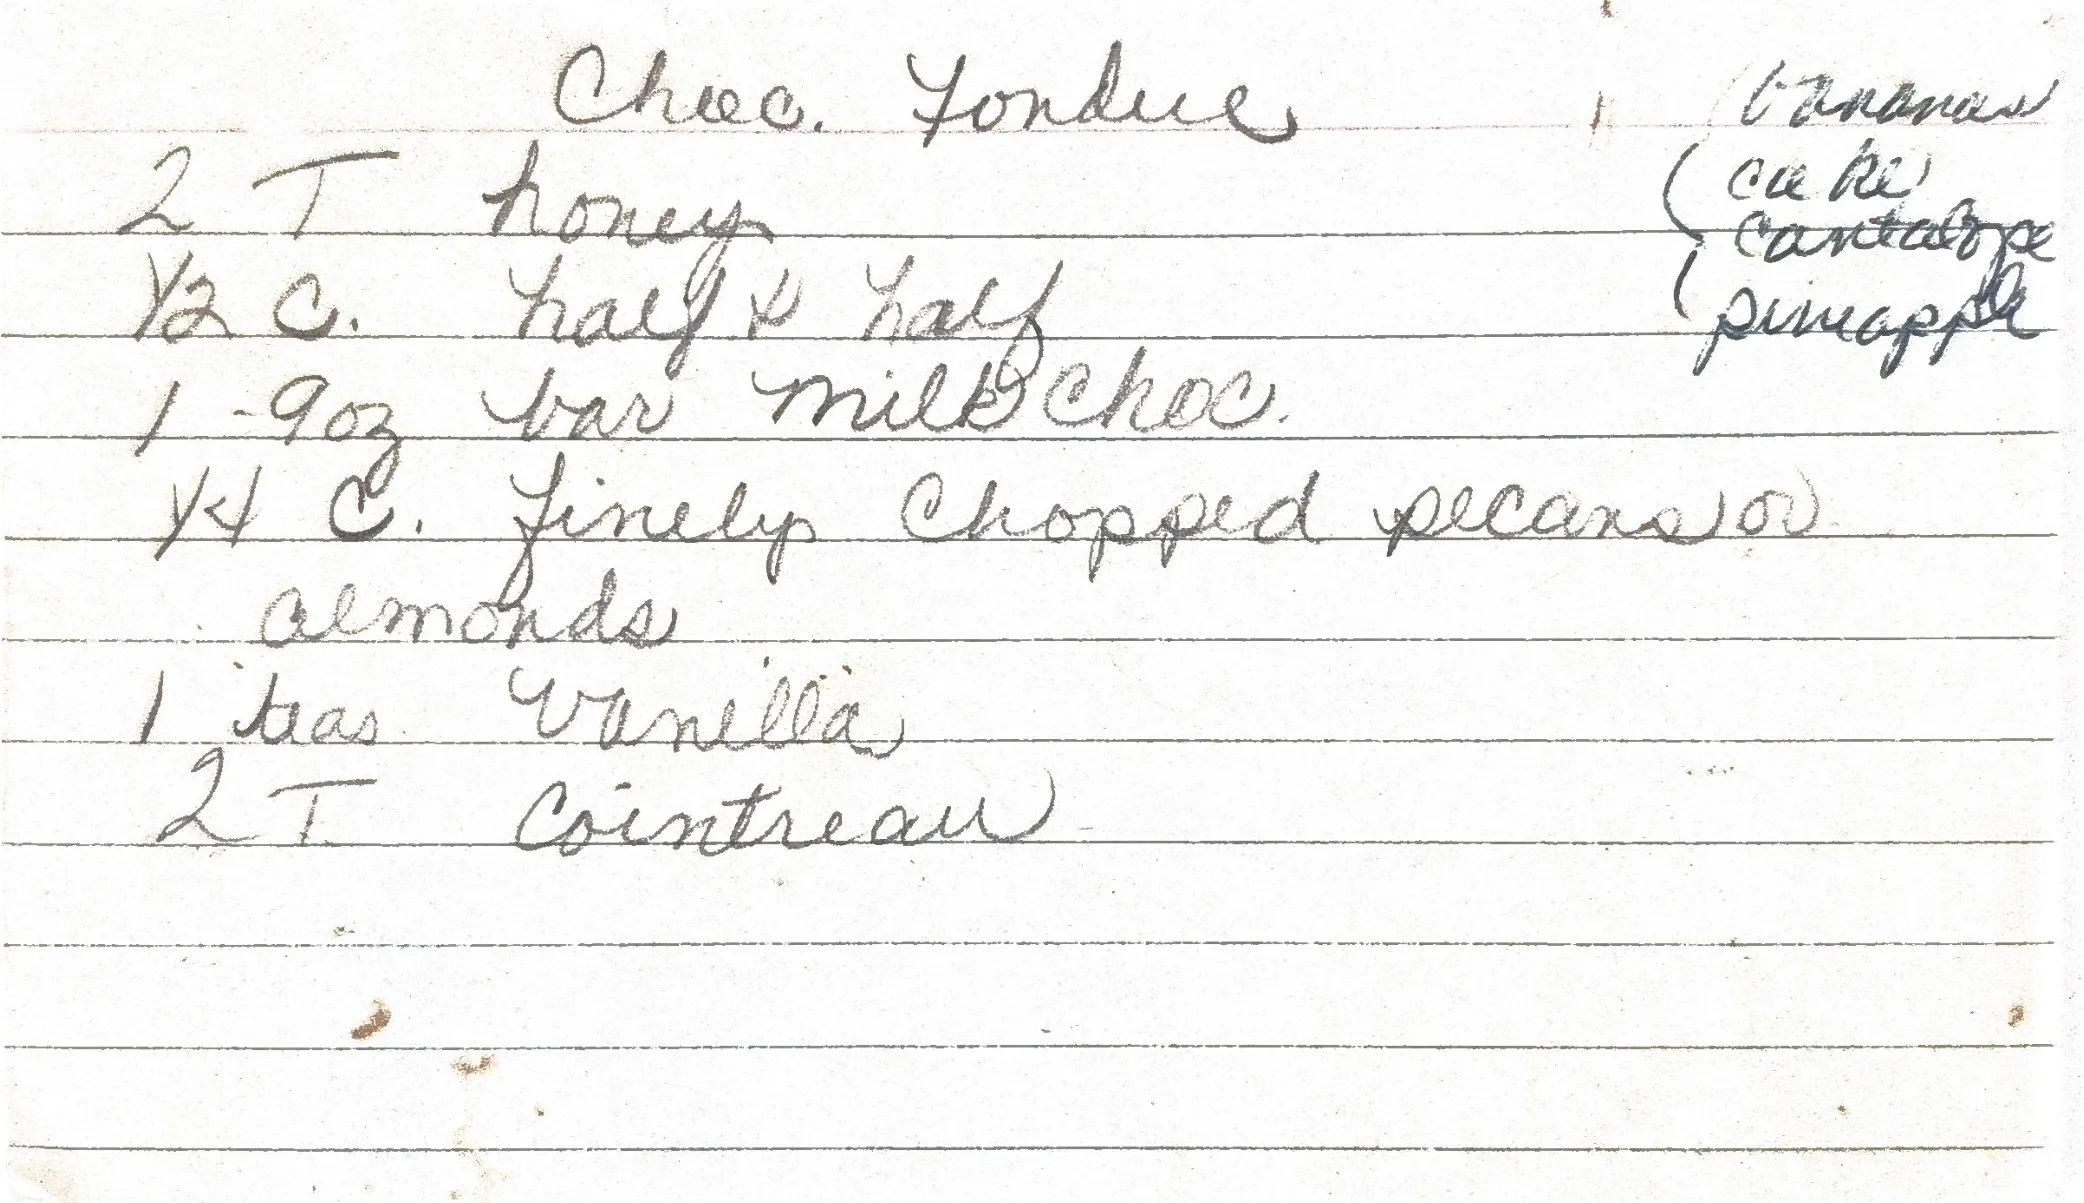 Choc. Fondue
bananas
cake
cantalope
pineapple
2 T honey
1/2 C. half & half
1 - 9 oz bar milk choc.
1/4 C. finely chopped pecans or
almonds
1 teas vanilla
2 T Cointreau